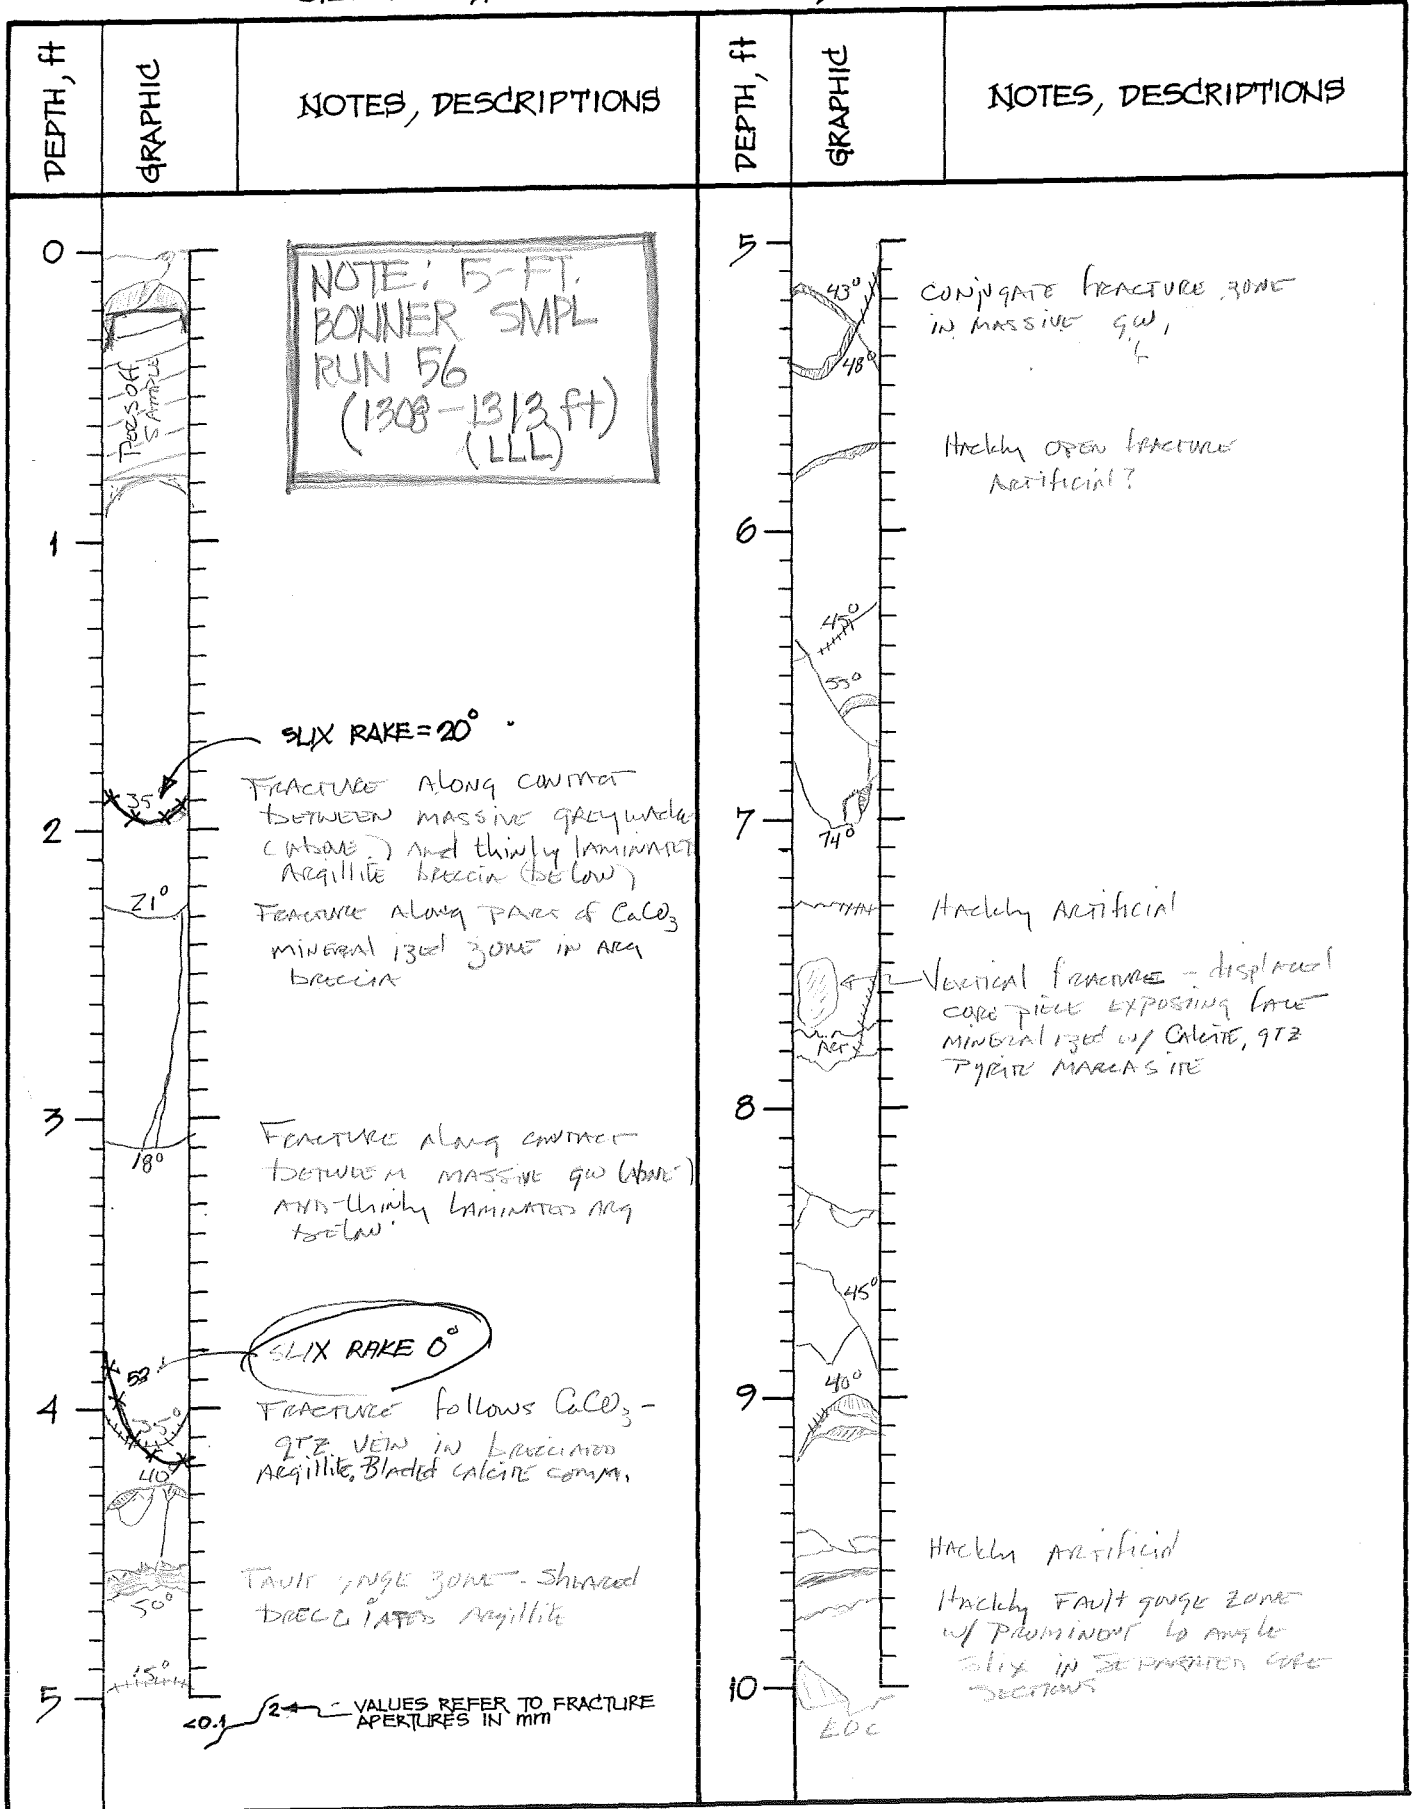 DEPTH, ft
GRAPHIC
NOTES, DESCRIPTIONS
DEPTH, ft
GRAPHIC
NOTES, DESCRIPTIONS
0
NOTE: 5-FT.
BONNER SMPL
RUN 56
(1308-1313 ft)
(LLL)
PERSOFF
SAMPLE
1
SLIX RAKE = 20°
35°
FRACTURE ALONG CONTACT
BETWEEN MASSIVE GREYWACKE
(ABOVE) And thinly LAMINATED
ARgillite breccia (BELOW)
2
21°
FRACTURE Along PART of CaCO3
MINERALIZED ZONE IN ARG
BRECCIA
3
18°
FRACTURE Along CONTACT
BETWEEN MASSIVE GW (Above)
AND thinly LAMINATED ARG
BELOW
SLIX RAKE 0°
53
4
35°
40
FRACTURE follows CaCO3-
QTZ VEIN IN BRECCIATED
ARgillite. Bladed CALCITE COMM.
FAULT GOUGE ZONE - Sheared
BRECCIATED Argillite
50°
15°
5
<0.1
2
VALUES REFER TO FRACTURE
APERTURES IN mm
5
43°
48°
CONJUGATE FRACTURE ZONE
IN MASSIVE GW,
Hackly OPEN FRACTURE
ARTificial?
6
45°
55°
7
74°
Hackly ARTIFICIAL
VERTICAL FRACTURE - displaced
CORE PIECE EXPOSING FACE
MINERALIZED w/ CALCITE, QTZ
PYRITE MARCASITE
ART
8
45°
9
40°
HACKly ARTificial
HACKly FAULT gouge ZONE
w/ PROMINENT LO ANGLE
Slix IN SEPARATED CORE
SECTIONS
10
EOC